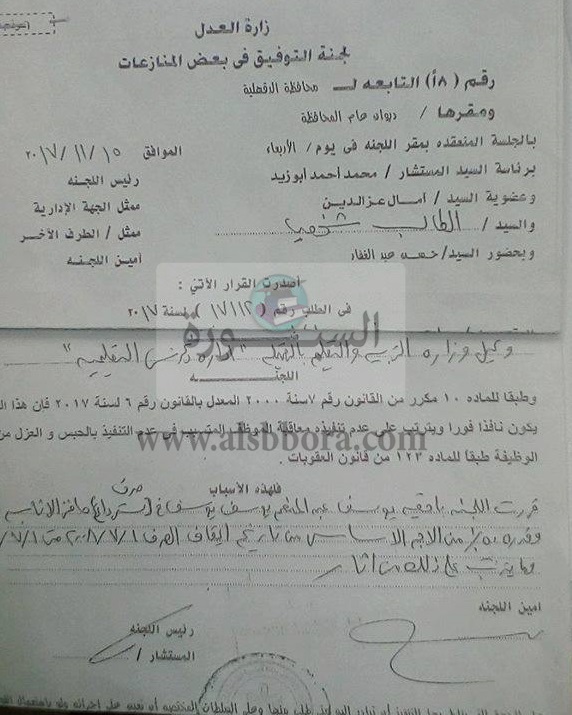 وزارة العدل
لجنة التوفيق فى بعض المنازعات
رقم ( ١٨) التابعه لـ محافظة الدقهلية
ومقرها / ديوان عام المحافظة
بالجلسة المنعقده بمقر اللجنه فى يوم / الأربعاء الموافق ١٥ / ١١ / ٢٠١٧
برئاسة السيد المستشار / محمد أحمد أبوزيد رئيس اللجنه
وعضوية السيد / أمال عزالدين ممثل الجهة الإدارية
والسيد / الطالب شخصيا ممثل / الطرف الآخر
وبحضور السيد / عبد الغفار أمين اللجنه
أصدرت القرار الآتي :
فى الطلب رقم ( ١٧١١٢ ) لسنة ٢٠١٧
السبورة
وكيل وزارة التربيه والتعليم بالدقهليه " اداره التعليميه "
اللجنه
وطبقا للماده ١٠ مكرر من القانون رقم ٧ سنة ٢٠٠٠ المعدل بالقانون رقم ٦ لسنة ٢٠١٧ فان هذا
يكون نافذا فورا ويترتب على عدم تنفيذه معاقبة الموظف المتسبب فى عدم التنفيذ بالحبس و العزل من
الوظيفة طبقا للماده ١٢٣ من قانون العقوبات .
www.alsbbora.com
فلهذه الأسباب
قررت اللجنه باحقيه يوسف عبد المنعم يوسف فى صرف (استرداد) حافز الاثابه
وقدره ٥٠٪ من الاجر الاساسى من تاريخ ايقاف الصرف ٢٠٠٨/٧/١ حتى
وما يترتب على ذلك من اثار
امين اللجنه
رئيس اللجنه
المستشار /